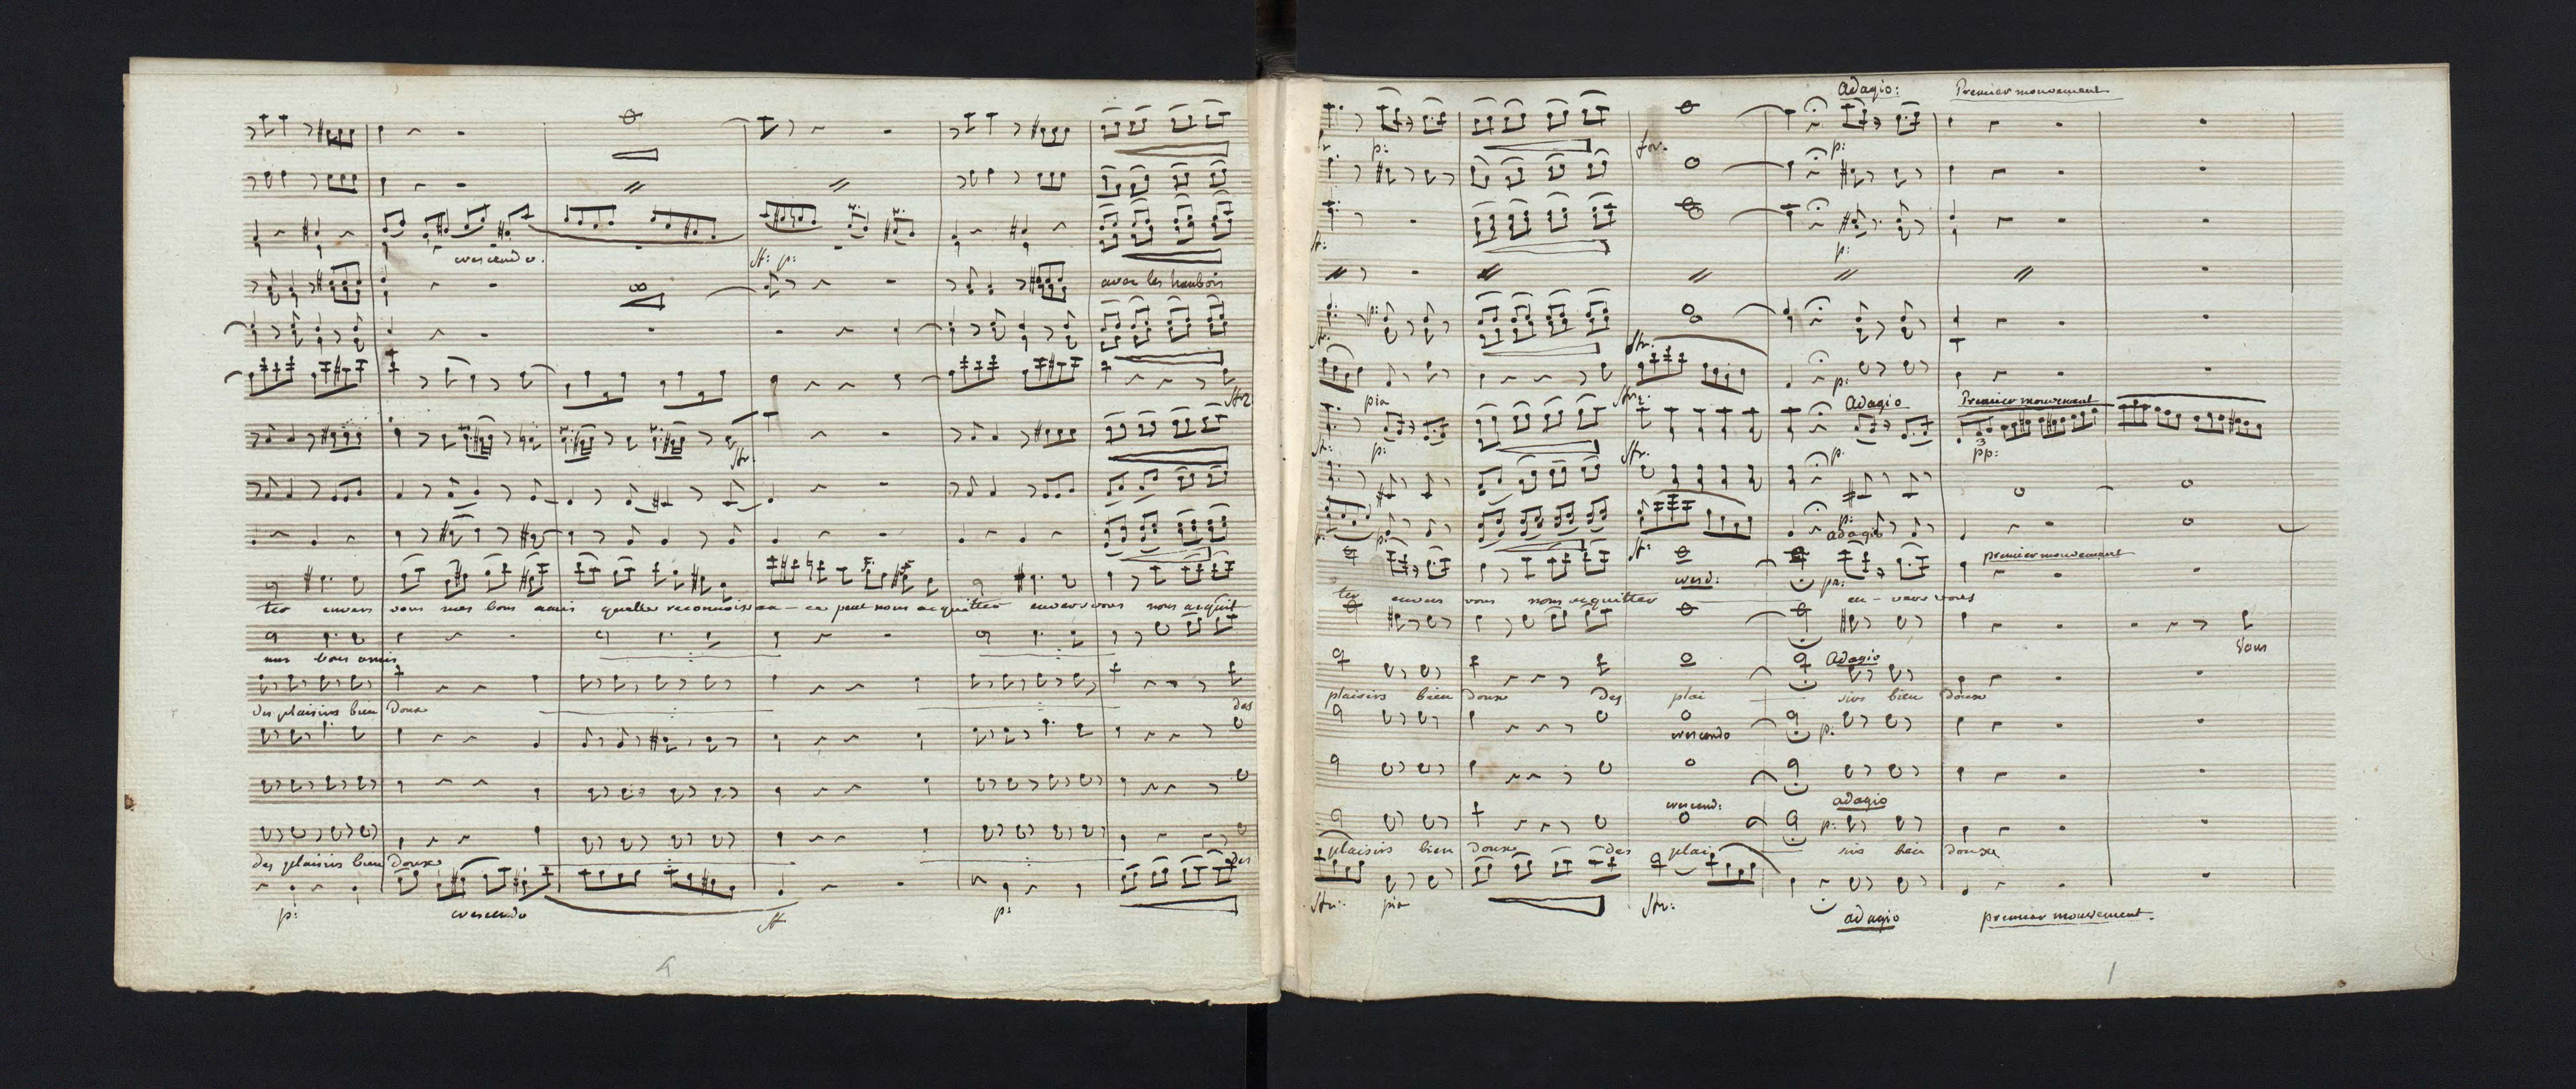 crescendo.
p:
avec les haubois
ter envers vous mes bons amis quelle reconnoissan-ce peut nous acquitter envers vous nous acquit-
mes bons amis
des plaisirs bien doux
des
des plaisirs bien doux
des
p:
crescendo
p:
Adagio:
Premier mouvement
p:
for.
p:
p:
p:
pia
Adagio
Premier mouvement
p:
p.
3
pp:
p:
p:
adagio
premier mouvement
cresc:
ter envers vous nous acquitter en-vers vous
Vous
Adagio
plaisirs bien doux des plai sirs bien doux
crescendo
p:
crescend:
adagio
p:
plaisirs bien doux des plai sirs bien doux
pia
adagio
premier mouvement.